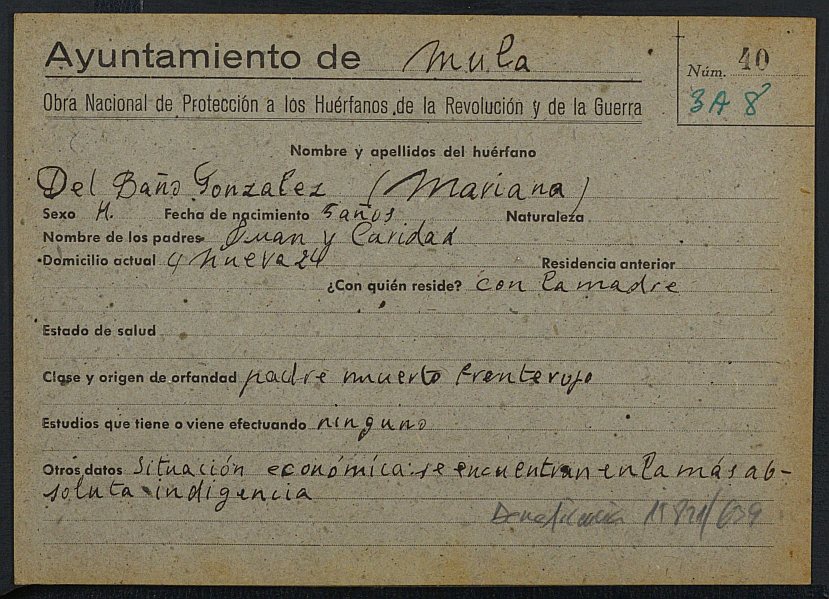 Ayuntamiento de Mula
Núm. 40
3A 8
Obra Nacional de Protección a los Huérfanos de la Revolución y de la Guerra
Nombre y apellidos del huérfano
Del Baño Gonzalez (Mariana)
Sexo H. Fecha de nacimiento 5 años Naturaleza
Nombre de los padres Juan y Caridad
Domicilio actual c/ Nueva 24 Residencia anterior
¿Con quién reside? con la madre
Estado de salud
Clase y origen de orfandad padre muerto frente rojo
Estudios que tiene o viene efectuando ninguno
Otros datos Situación económica: se encuentran en la más ab-
soluta indigencia
Beneficencia